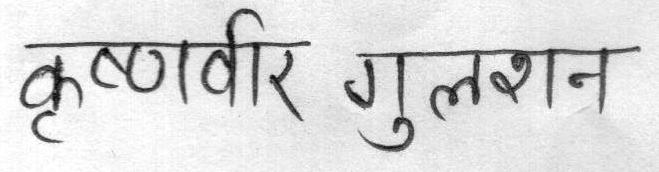 कृष्णवीर गुलशन